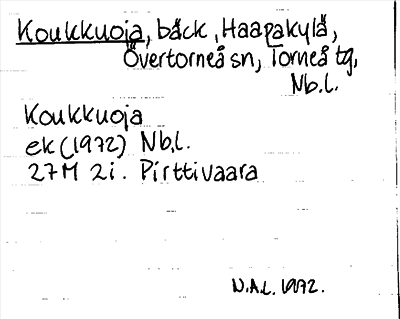 Koukkuoja, bäck, Haapakylä,
Övertorneå sn, Torneå tg,
Nb.l.
Koukkuoja
ek (1972) Nb.l.
27M 2i. Pirttivaara
N.A.L. 1972.